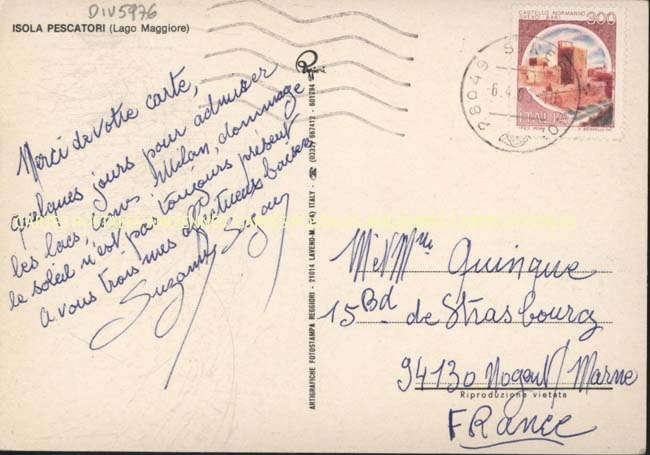 DIV5976
ISOLA PESCATORI (Lago Maggiore)
Merci de votre carte,
quelques jours pour admirer
les lacs, Milan, dommage
le soleil n'est pas toujours présent
a vous trois mes affectueux baisers
Suzanne
ARTIGRAFICHE FOTOSTAMPA REGGIORI - 21014 LAVENO-M. (VA) ITALY - ☎ (0332) 667412 - 601784
CASTELLO NORMANNO
SVEVO - BARI
300
ITALIA
28049 STRESA
6.4
M et Mme Quinque
15 Bd de Strasbourg
94130 Nogent/Marne
Riproduzione vietata
FRANCE